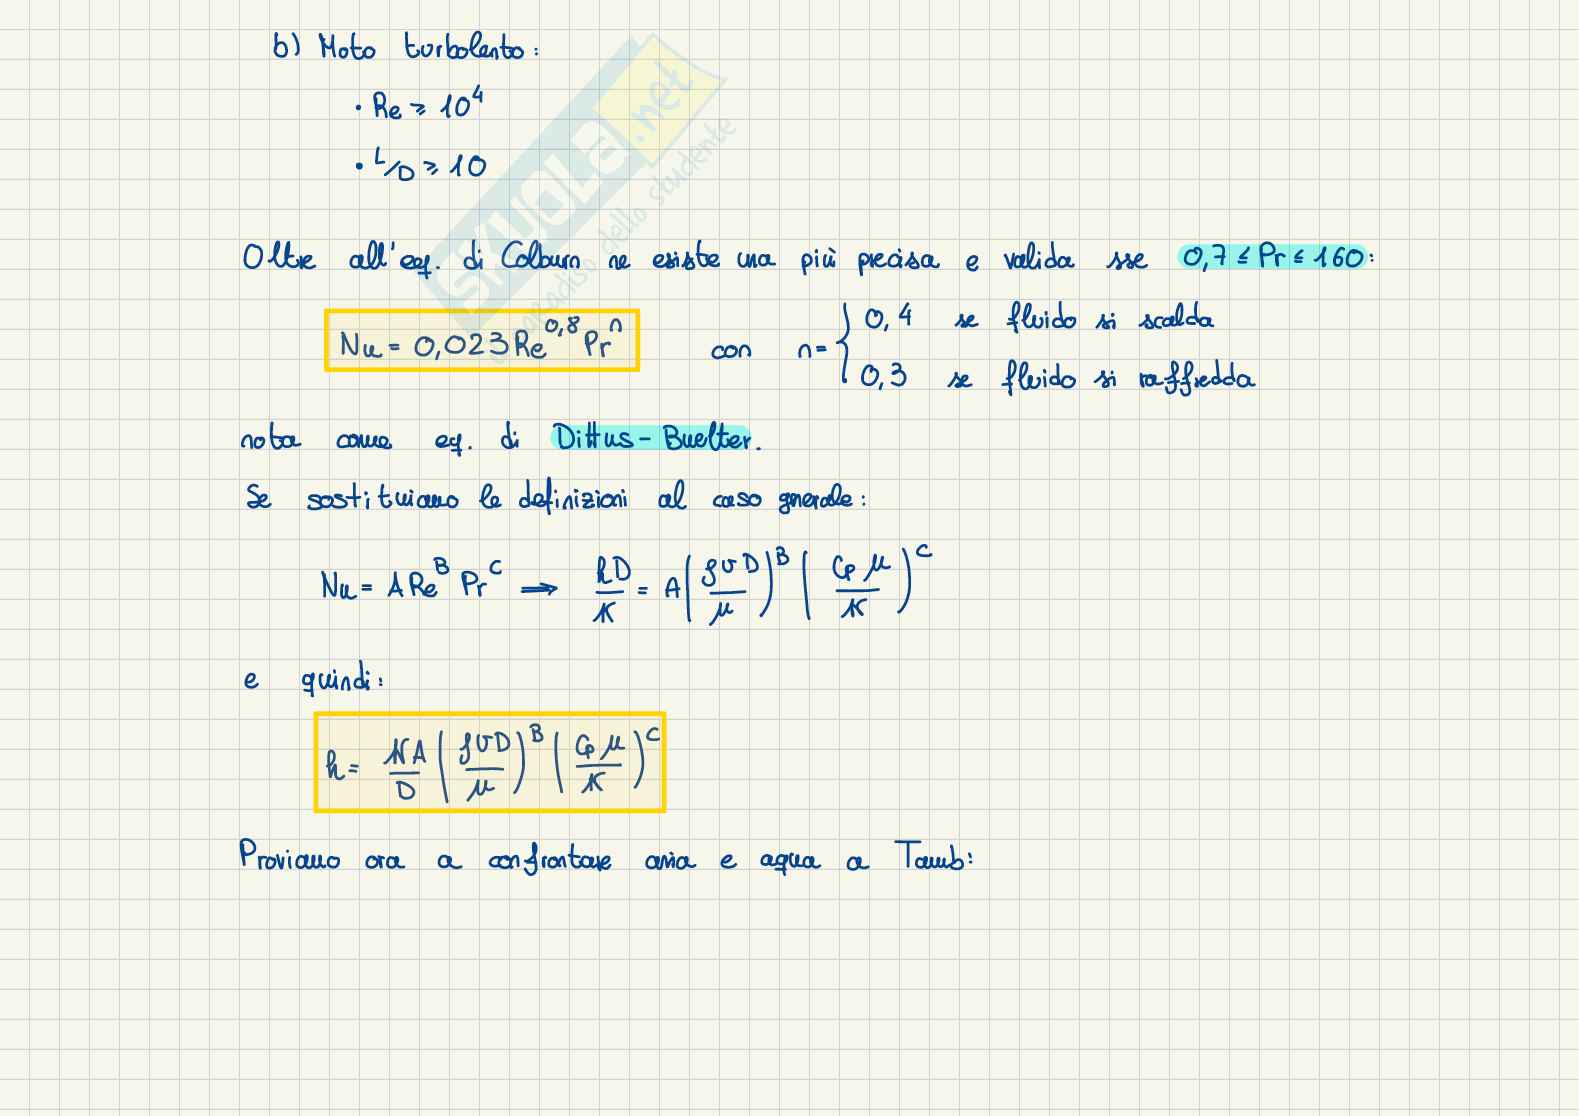 b) Moto turbolento:
• Re ≥ 10⁴
• L/D ≥ 10
Oltre all'eq. di Colburn ne esiste una più precisa e valida sse 0,7 ≤ Pr ≤ 160:
Nu = 0,023 Re^0,8 Pr^n con n = { 0,4 se fluido si scalda
0,3 se fluido si raffredda
nota come eq. di Dittus-Buelter.
Se sostituiamo le definizioni al caso generale:
Nu = A Re^B Pr^C ⟹ hD/K = A (ρvD/μ)^B (Cp μ/K)^C
e quindi:
h = KA/D (ρvD/μ)^B (Cp μ/K)^C
Proviamo ora a confrontare aria e aqua a Tamb:
SKUOLA.net
paradiso dello studente